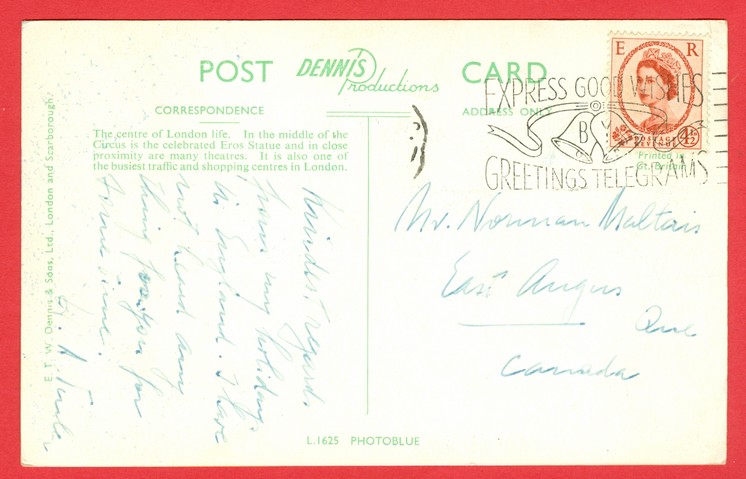 POST DENNIS Productions CARD
CORRESPONDENCE
ADDRESS ONLY
The centre of London life. In the middle of the
Circus is the celebrated Eros Statue and in close
proximity are many theatres. It is also one of
the busiest traffic and shopping centres in London.
Kindest regards
from my holiday
in England. I have
not heard any
thing from you for
some time.
E R
POSTAGE
REVENUE
4½
EXPRESS GOOD WISHES
BY
GREETINGS TELEGRAMS
Printed in
Gt. Britain
Mr. Norman Maltais
East Angus
Que
Canada
E. T. W. Dennis & Sons, Ltd., London and Scarborough.
L.1625 PHOTOBLUE